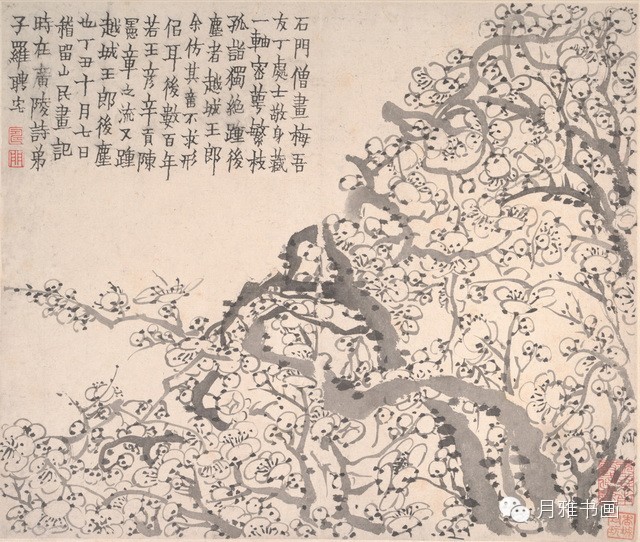 石門僧畫梅吾
友丁處士敬身藏
一軸密萼繁枝
孤詣獨絕踵後
塵者越城王郎
余仿其意不求形
侶耳後數百年
若王彥辛貢陳
憲章之流又踵
越城王郎後塵
也丁丑十月七日
稽留山民畫記
時在廣陵詩弟
子羅聘完
月雅书画